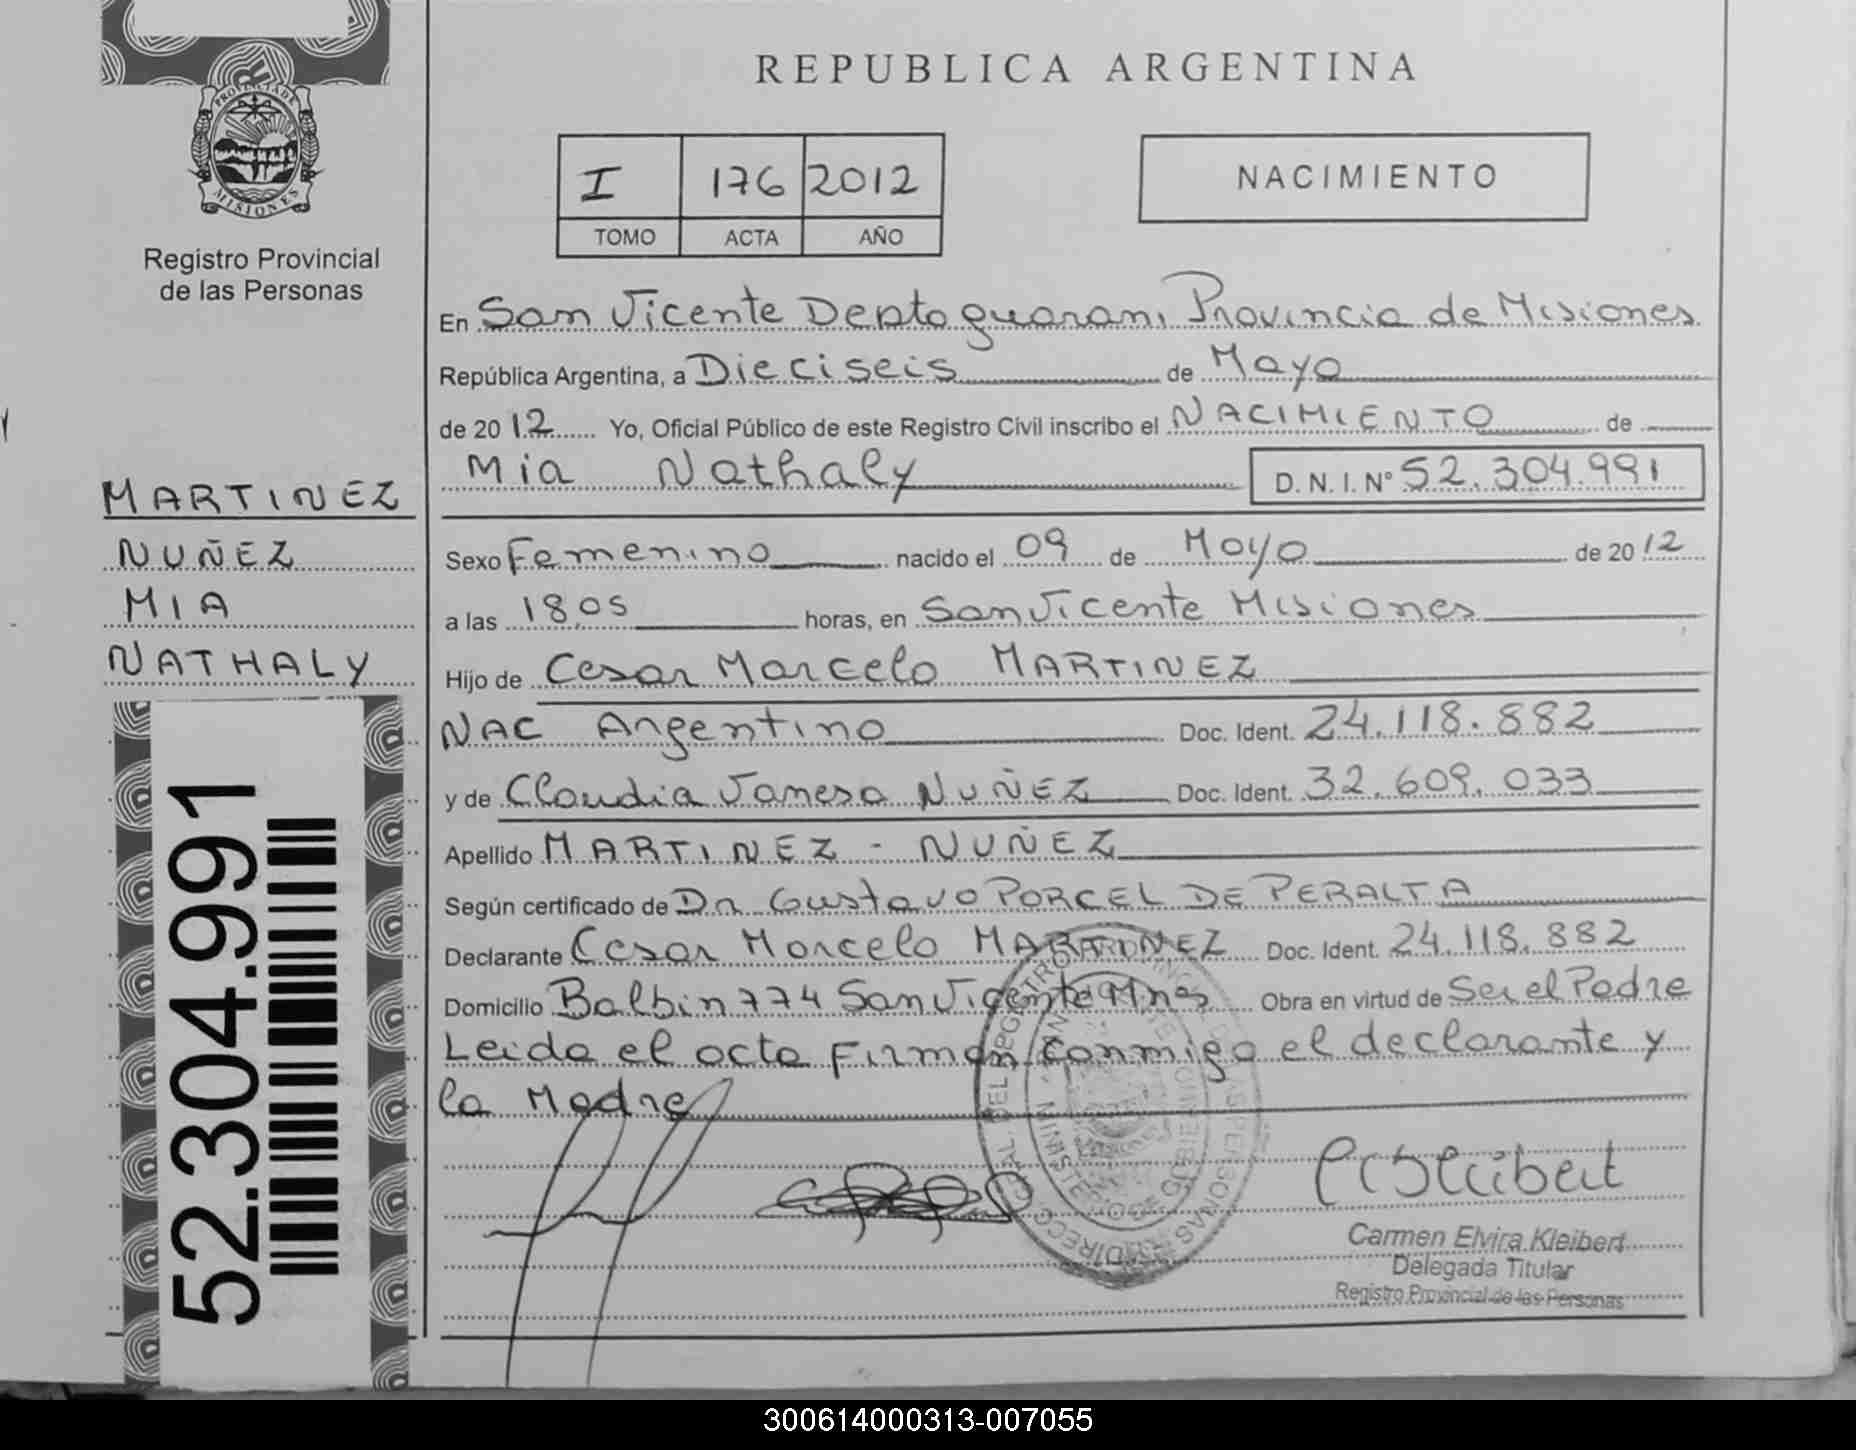 REPUBLICA ARGENTINA
PROVINCIA DE
MISIONES
Registro Provincial
de las Personas
I 176 2012
TOMO ACTA AÑO
NACIMIENTO
En San Vicente Depto guarani Provincia de Misiones
República Argentina, a Dieciseis de Mayo
de 2012 Yo, Oficial Público de este Registro Civil inscribo el NACIMIENTO de
Mia Nathaly D.N.I. Nº 52.304.991
MARTINEZ
NUÑEZ
MIA
NATHALY
52.304.991
Sexo Femenino nacido el 09 de Mayo de 2012
a las 18,05 horas, en San Vicente Misiones
Hijo de Cesar Marcelo MARTINEZ
NAC Argentino Doc. Ident. 24.118.882
y de Claudia Vanesa NUÑEZ Doc. Ident. 32.609.033
Apellido MARTINEZ - NUÑEZ
Según certificado de Dr Gustavo PORCEL DE PERALTA
Declarante Cesar Marcelo MARTINEZ Doc. Ident. 24.118.882
Domicilio Balbin 774 San Vicente Mnes Obra en virtud de Ser el Padre
Leida el acta Firman conmigo el declarante y
la Madre
Carmen Elvira Kleibert
Delegada Titular
Registro Provincial de las Personas
300614000313-007055